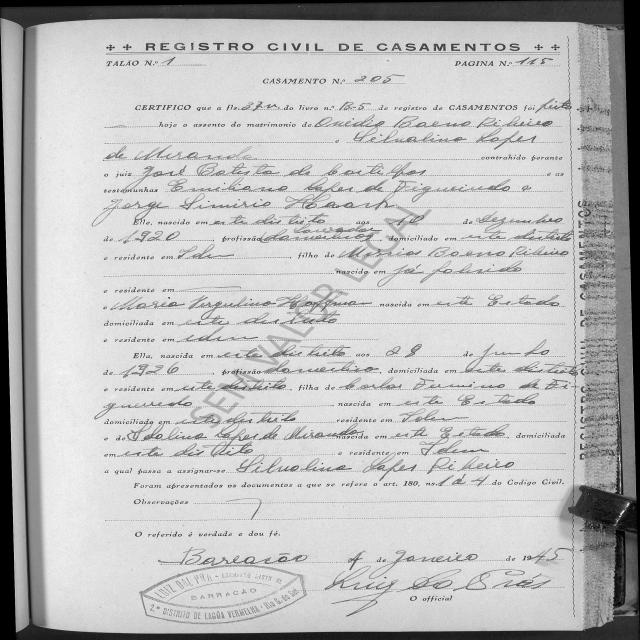 REGISTRO CIVIL DE CASAMENTOS
TALÃO N.º 1 PAGINA N.º 115
CASAMENTO N.º 205
CERTIFICO que a fls. 37v. do livro n.º B-5 de registro de CASAMENTOS foi feito
hoje o assento do matrimonio de Onédio Baeno Ribeiro
e Silvalina Lopes
de Miranda contrahido perante
o juiz José Batista de e as
testemunhas Emiliano Lopes de Figueiredo e
Jorge
Elle, nascido em este districto aos 10 de Dezembro
de 1920, profissão Lavrador domiciliado em este districto
e residente em Idem, filho de Baeno Ribeiro
nascido em já falecido
e residente em
e Maria Vergulina nascida em este Estado
domiciliada em este districto
e residente em idem
Ella, nascida em este districto aos 28 de Junho
de 1926, profissão domestica, domiciliada em este districto
e residente em este districto, filha de Carlos Firmino de Fi-
gueredo nascida em este Estado
domiciliado em este districto residente em Idem
e de Idalina Lopes de Miranda nascida em este Estado, domiciliada
em este districto e residente em Idem
a qual passa a assignar-se Silvalina Lopes Ribeiro
Foram apresentados os documentos a que se refere o art. 180, ns. 1 a 4 do Codigo Civil.
Observações
O referido é verdade e dou fé.
Barracão 4 de Janeiro de 1945
Luiz Dal Prá
O official
LUIZ DAL PRÁ
BARRACÃO
2.º DISTRITO DE LAGÔA VERMELHA - Rio G. do Sul
SEM VALOR LEGAL
REGISTRO CIVIL DE CASAMENTOS